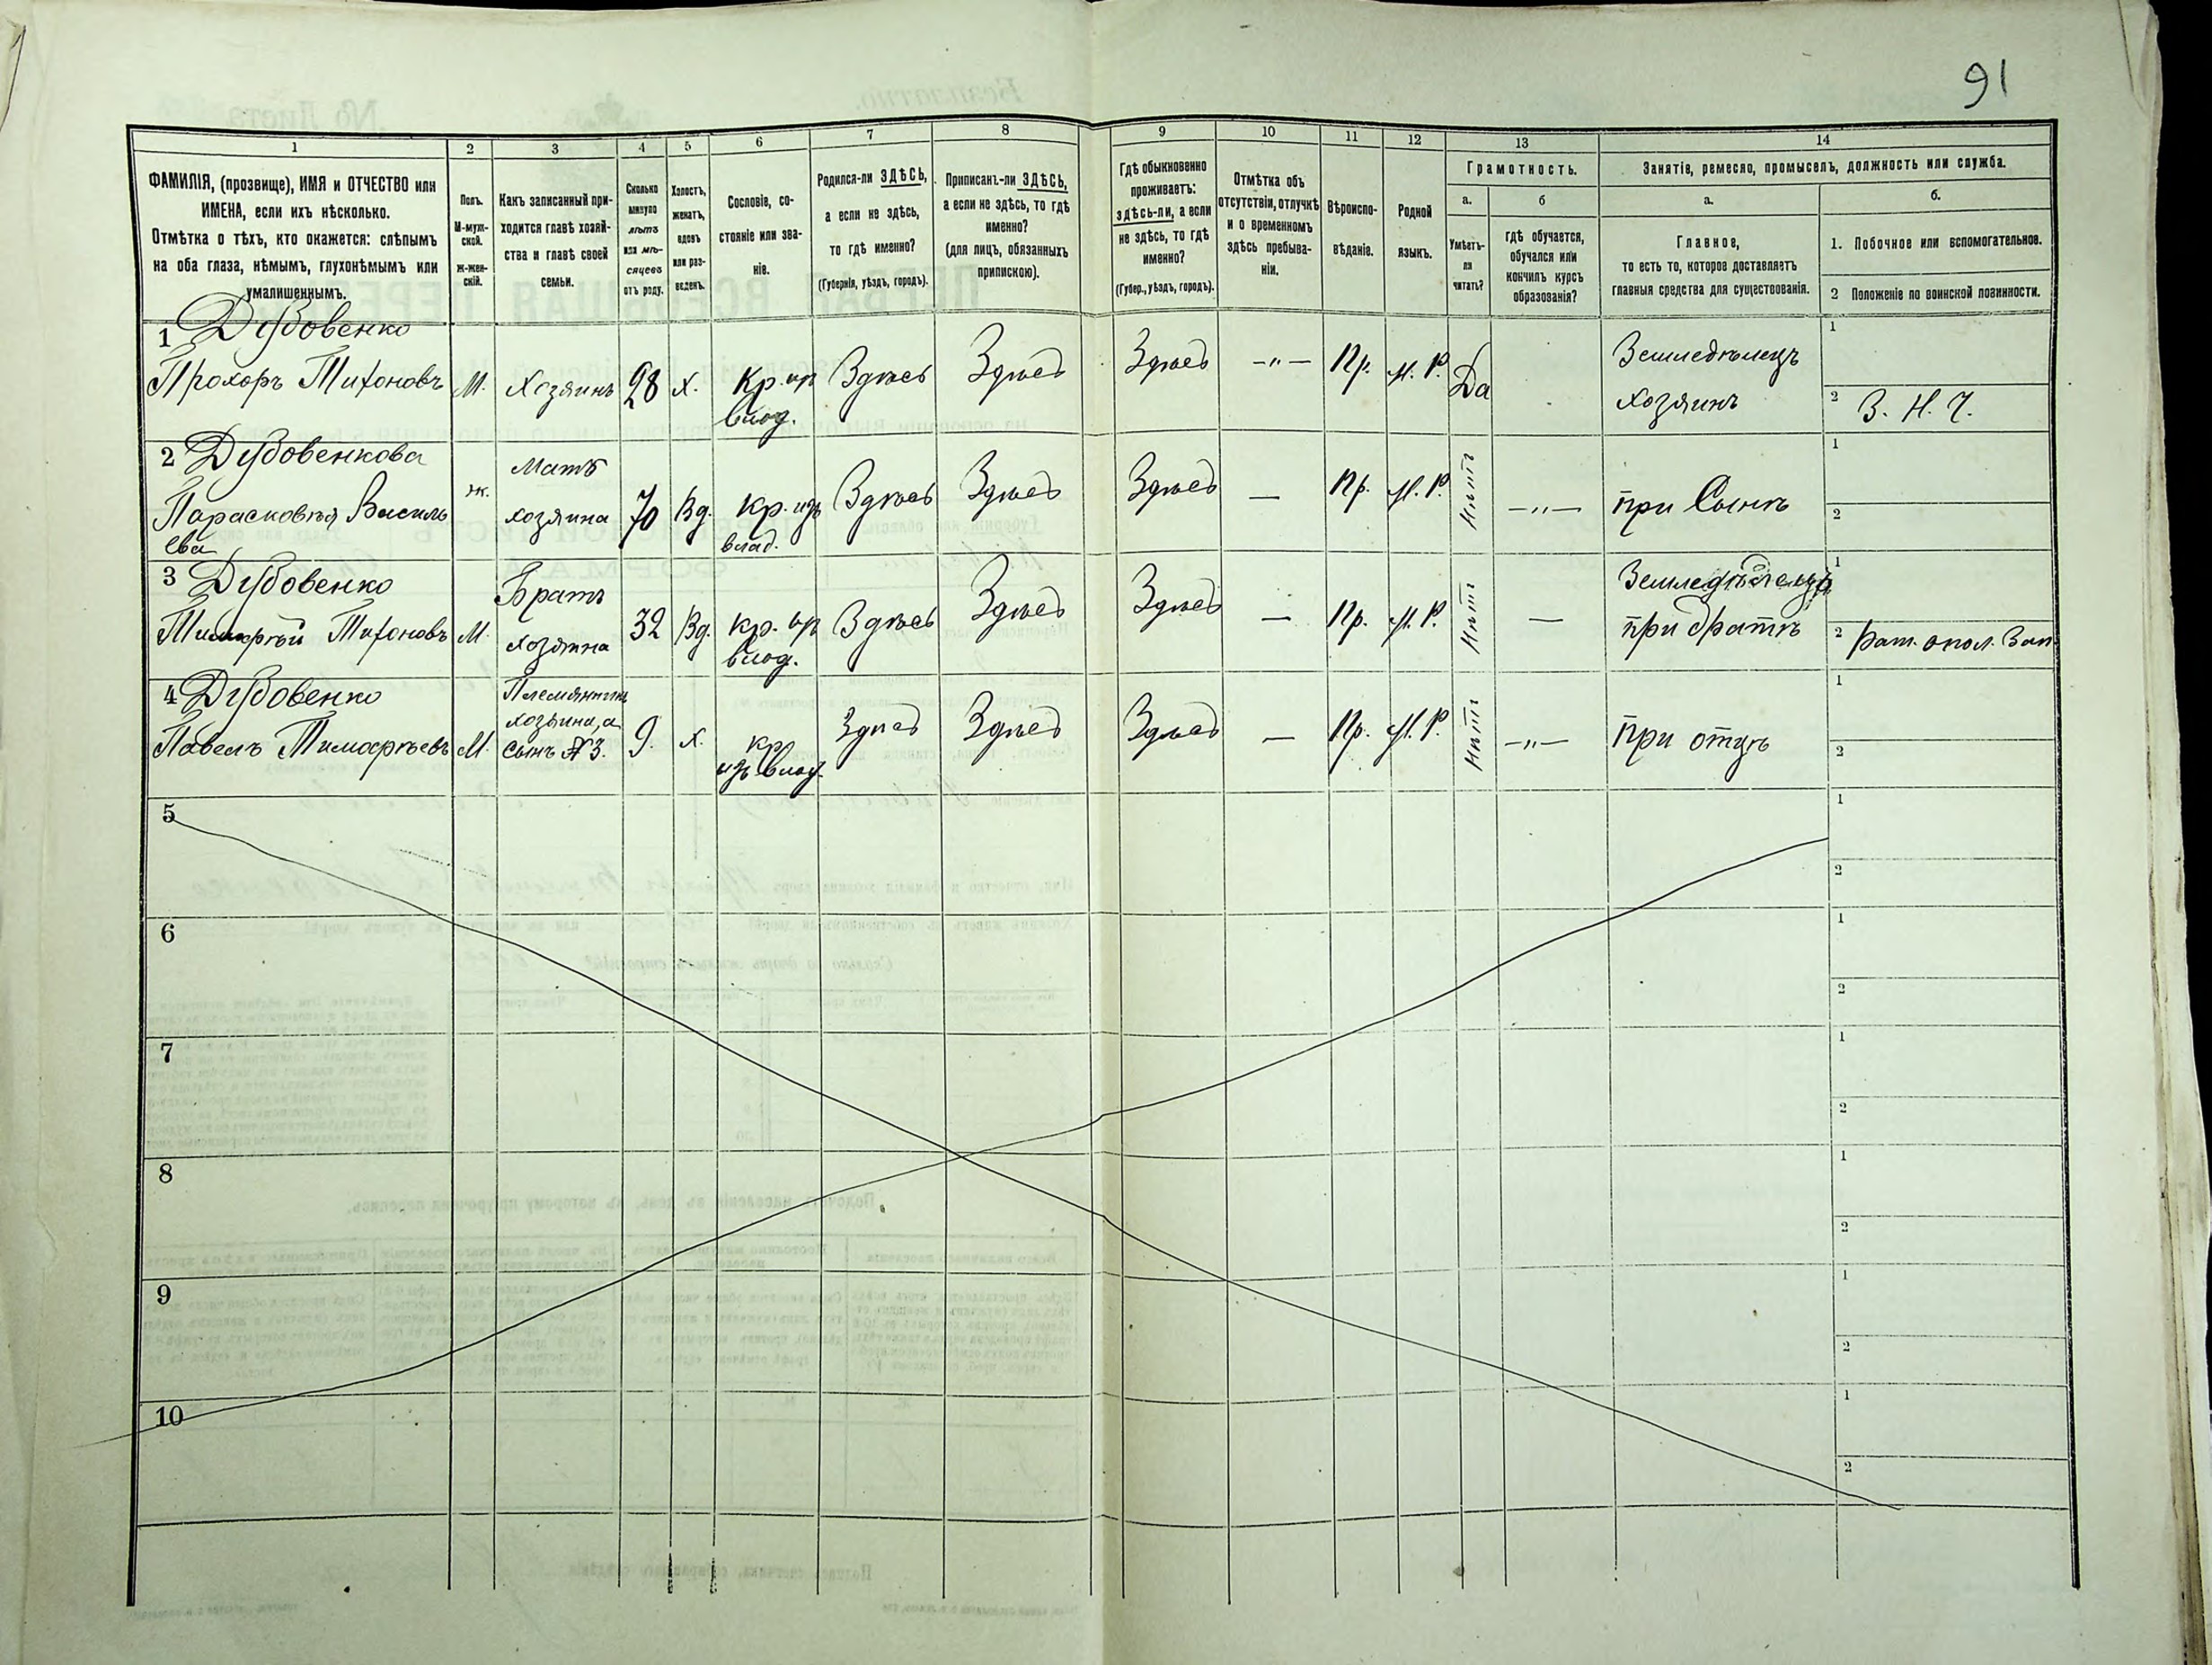 91
1
2
3
4
5
6
7
8
9
10
11
12
13
14
ФАМИЛІЯ, (прозвище), ИМЯ и ОТЧЕСТВО или
ИМЕНА, если ихъ нѣсколько.
Отмѣтка о тѣхъ, кто окажется: слѣпымъ
на оба глаза, нѣмымъ, глухонѣмымъ или
умалишеннымъ.
Полъ.
М-муж-
ской.
Ж-жен-
скій.
Какъ записанный при-
ходится главѣ хозяй-
ства и главѣ своей
семьи.
Сколько
минуло
лѣтъ
или мѣ-
сяцевъ
отъ роду.
Холостъ,
женатъ,
вдовъ
или раз-
веденъ.
Сословіе, со-
стояніе или зва-
ніе.
Родился-ли ЗДѢСЬ,
а если не здѣсь,
то гдѣ именно?
(Губернія, уѣздъ, городъ).
Приписанъ-ли ЗДѢСЬ,
а если не здѣсь, то гдѣ
именно?
(для лицъ, обязанныхъ
припискою).
Гдѣ обыкновенно
проживаетъ:
здѣсь-ли, а если
не здѣсь, то гдѣ
именно?
(Губер., уѣздъ, городъ).
Отмѣтка объ
отсутствіи, отлучкѣ
и о временномъ
здѣсь пребыва-
ніи.
Вѣроиспо-
вѣданіе.
Родной
языкъ.
Грамотность.
а.
б
Умѣетъ-
ли
читать?
гдѣ обучается,
обучался или
кончилъ курсъ
образованія?
Занятіе, ремесло, промыселъ, должность или служба.
а.
б.
Главное,
то есть то, которое доставляетъ
главныя средства для существованія.
1. Побочное или вспомогательное.
2 Положеніе по воинской повинности.
1 Дубовенко
Прохоръ Тихоновъ
М.
Хозяинъ
28
х.
Кр. из
влад.
Здѣсь
Здѣсь
Здѣсь
-"-
Пр.
М. Р.
Да
Земледѣлецъ
хозяинъ
1
2 З. Н. Ч.
2 Дубовенкова
Парасковѣя Василь
ева
ж.
Мать
хозяина
70
Вд.
Кр. изъ
влад.
Здѣсь
Здѣсь
Здѣсь
—
Пр.
М. Р.
Нѣтъ
-"-
при Сынѣ
1
2
3 Дубовенко
Тимофѣй Тихоновъ
М.
Братъ
хозяина
32
Вд.
кр. из
влад.
Здѣсь
Здѣсь
Здѣсь
—
Пр.
М. Р.
Нѣтъ
—
Земледѣлецъ
при братѣ
1
2 Рат. опол. Зап
4 Дубовенко
Павелъ Тимофѣевъ
М.
Племянникъ
хозяина, а
сынъ № 3.
9.
х.
кр
изъ влад.
Здѣсь
Здѣсь
Здѣсь
—
Пр.
М. Р.
Нѣтъ
-"-
при отцѣ
1
2
5
1
2
6
1
2
7
1
2
8
1
2
9
1
2
10
1
2